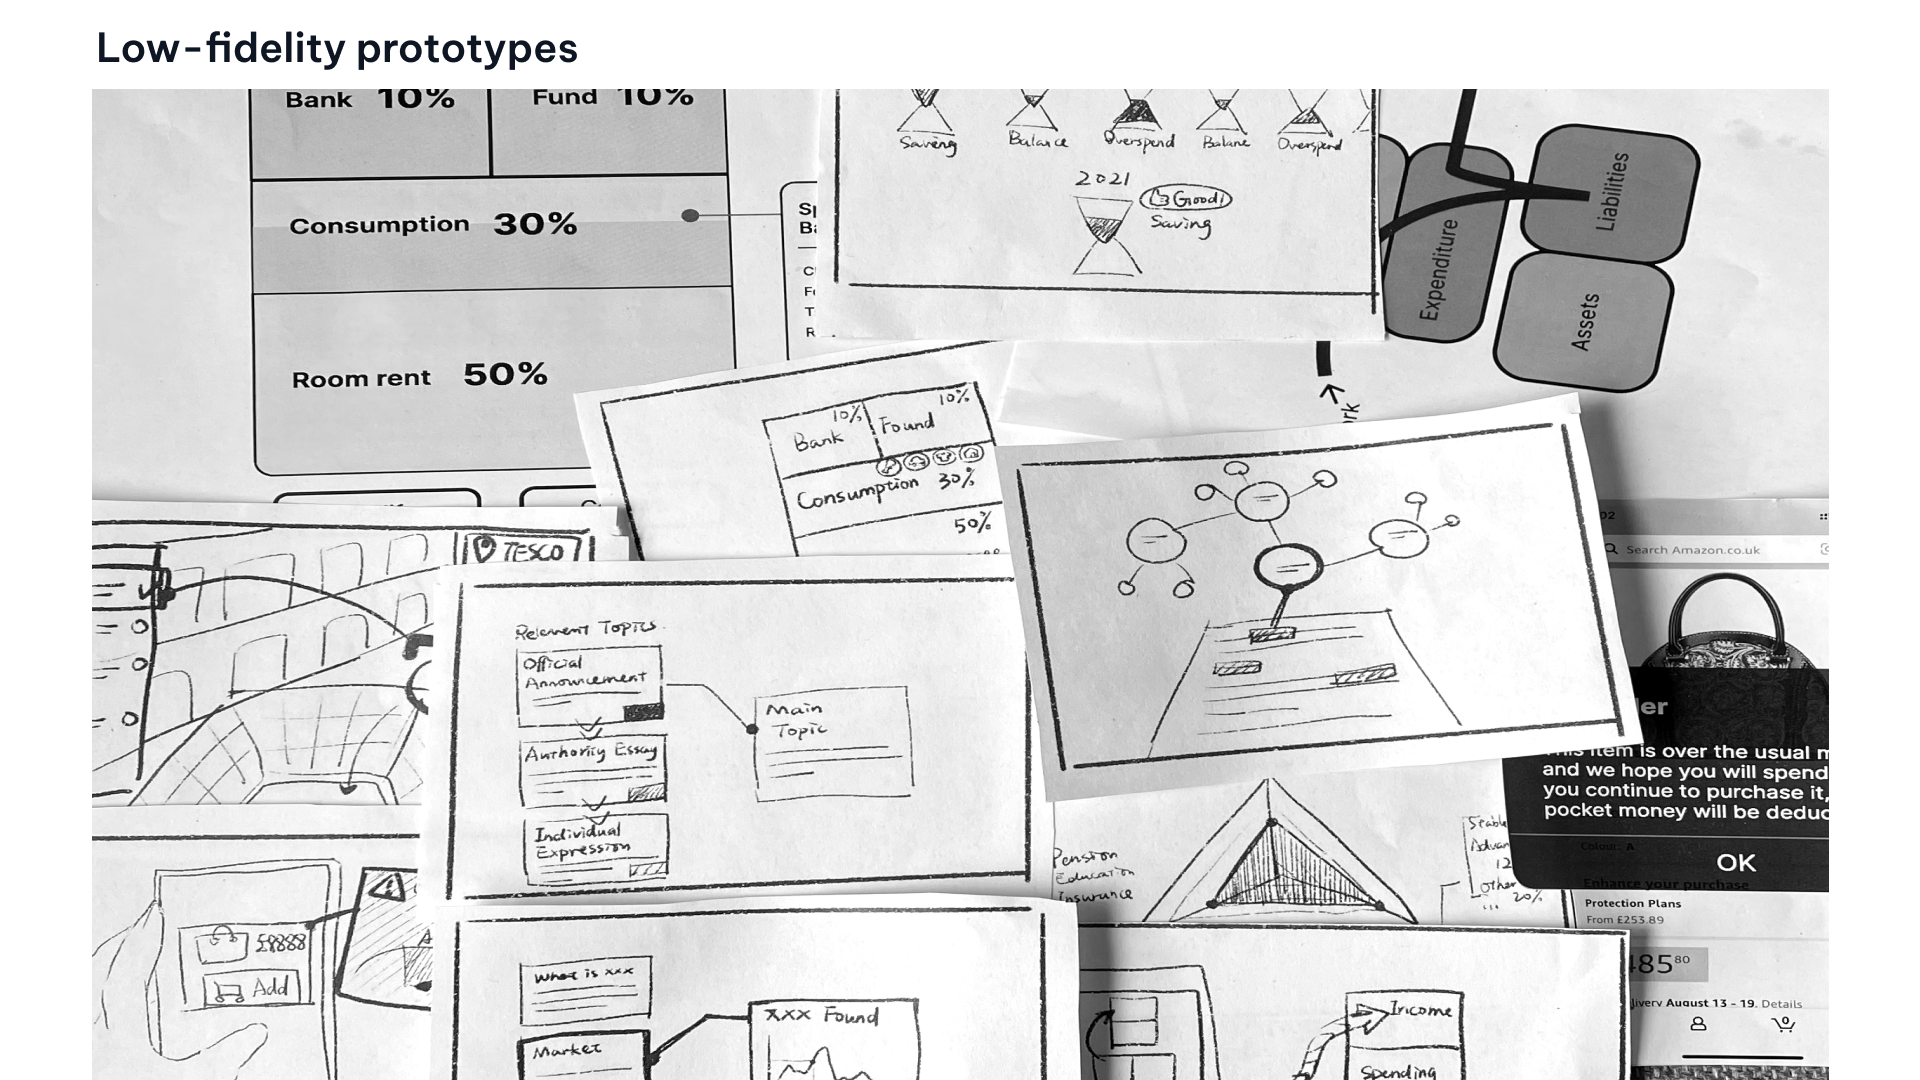 Low-fidelity prototypes
Bank 10%
Fund 10%
Consumption 30%
Room rent 50%
Saving
Balance
Overspend
Balane
Overspend
2021
Good!
Saving
Expenditure
Liabilities
Assets
10%
Bank
10%
Found
Consumption 30%
50%
TESCO
Relevent Topics
Official
Announcement
Authority Essay
Individual
Expression
Main
Topic
Search Amazon.co.uk
This item is over the usual m
and we hope you will spend
you continue to purchase it,
pocket money will be deduc
OK
Enhance your purchase
Protection Plans
From £253.89
485 80
livery August 13 - 19. Details
Pension
Education
Insurance
Stable
Advan
12
Other
20%
...
£8888
Add
What is xxx
Market
xxx Found
Income
Spending